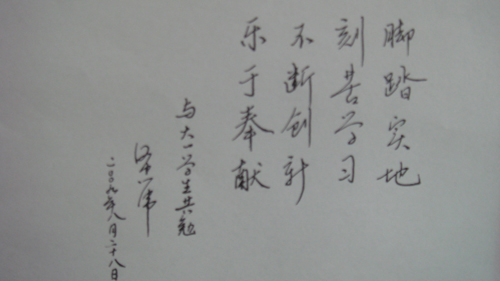 脚踏实地
刻苦学习
不断创新
乐于奉献
与大一学生共勉
二〇〇九年八月二十八日